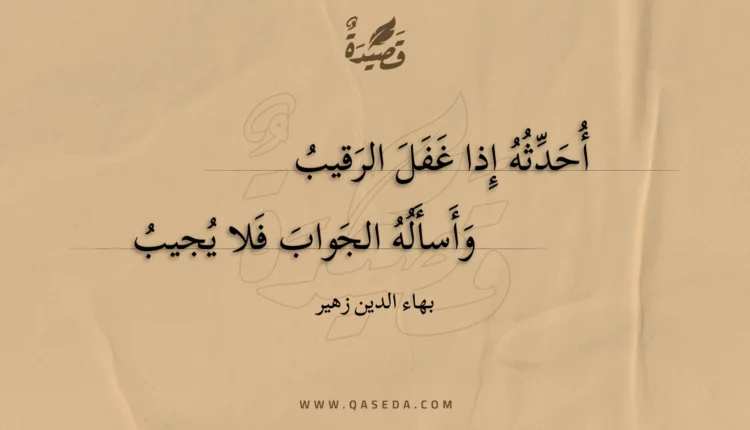 قَصِيْدَةٌ
أُحَدِّثُهُ إِذا غَفَلَ الرَقيبُ
وَأَسأَلُهُ الجَوابَ فَلا يُجيبُ
بهاء الدين زهير
WWW.QASEDA.COM